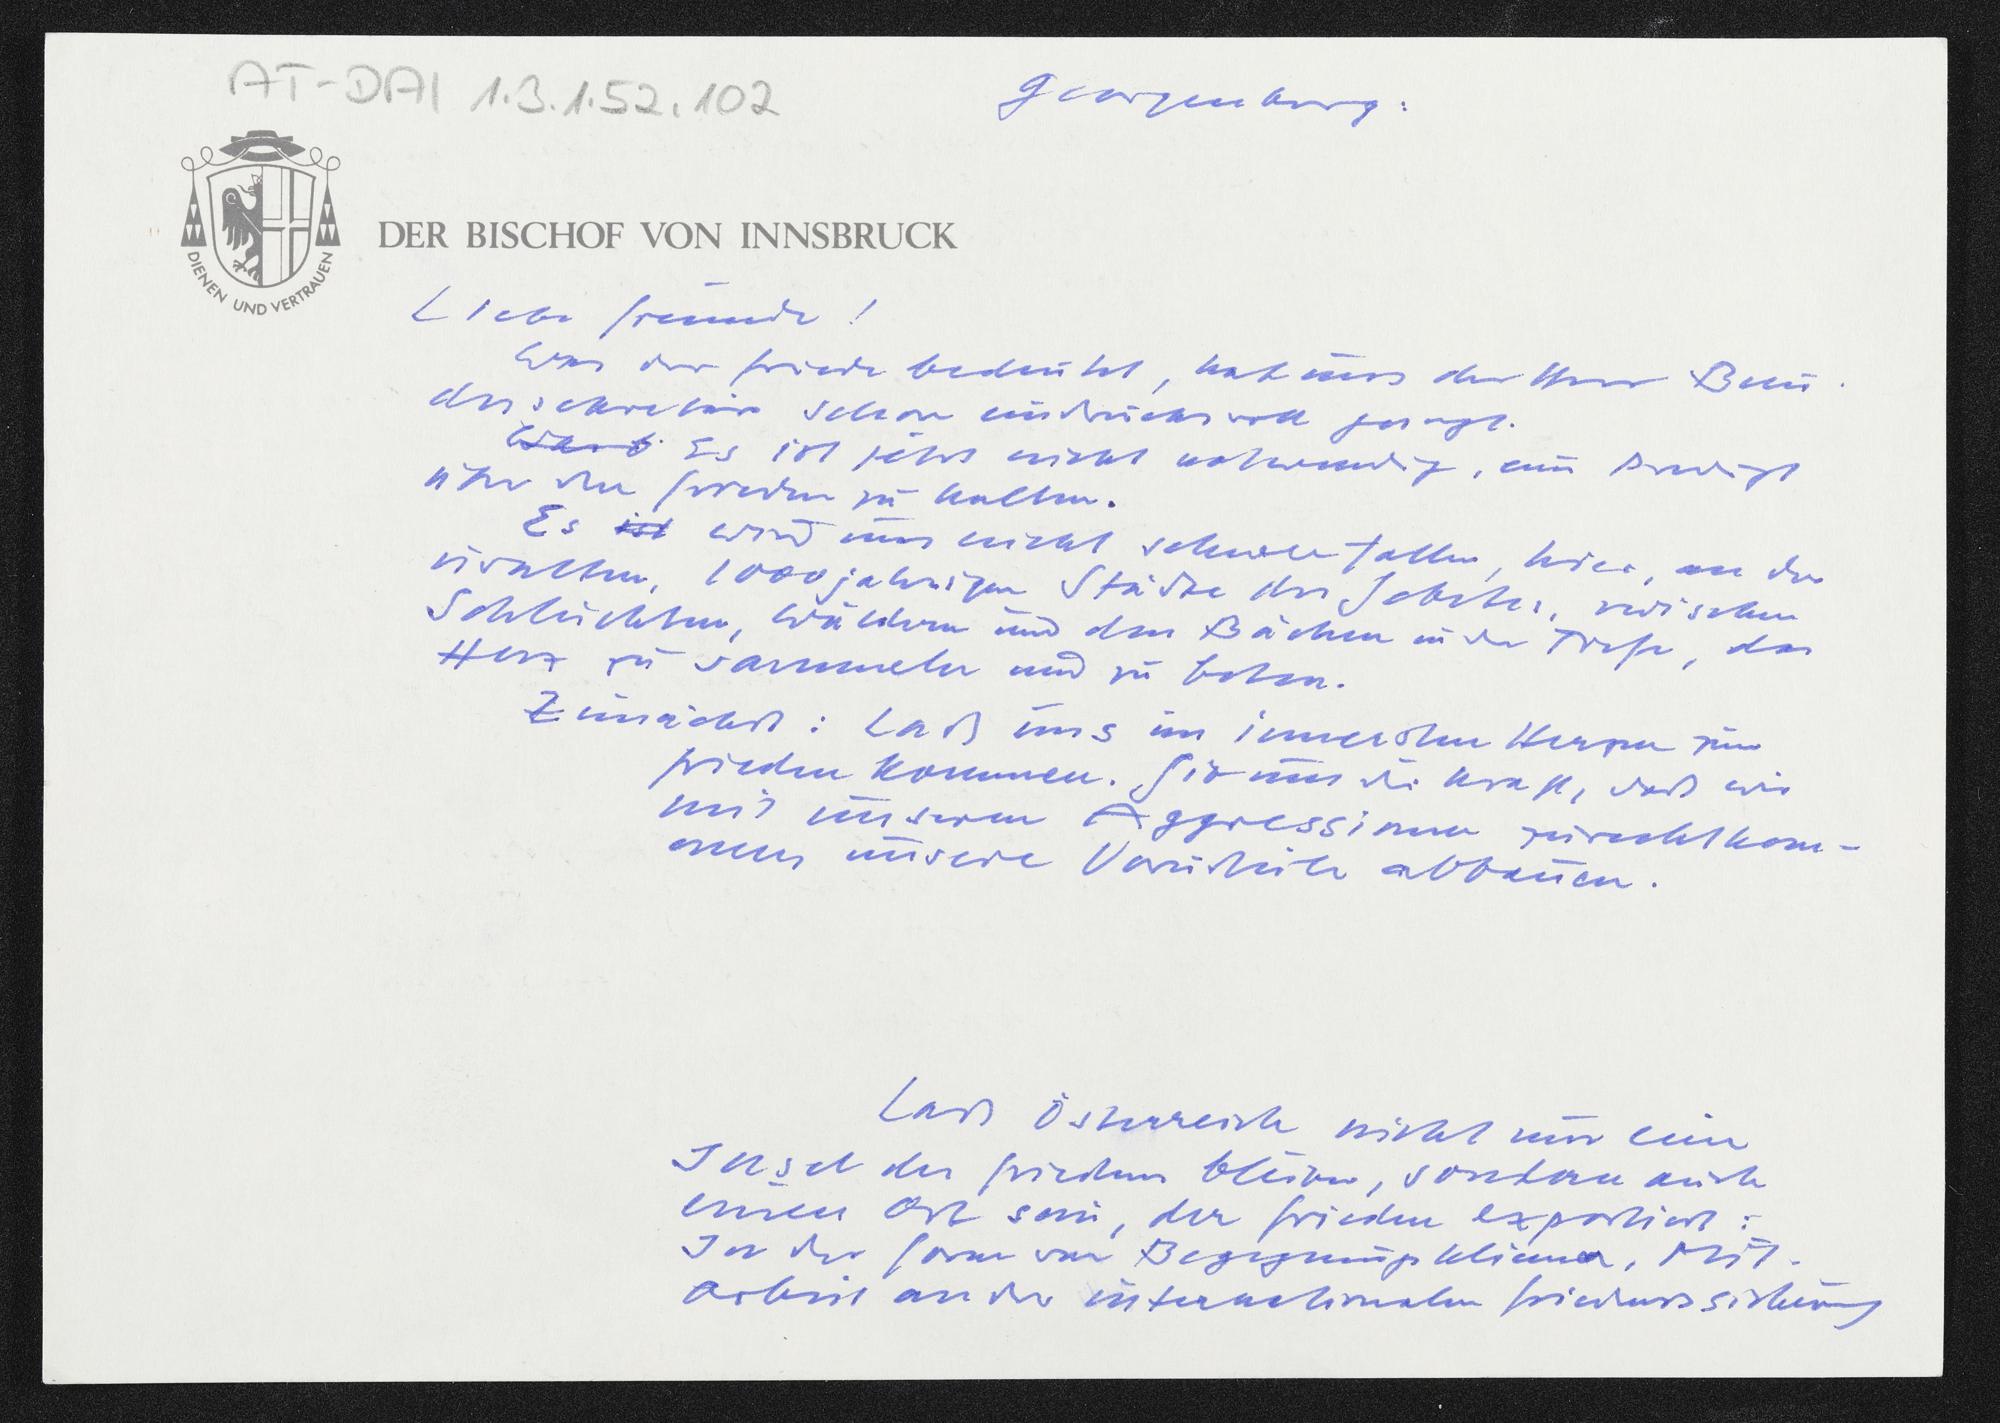 AT-DAI 1.3.1.52.102
Georgenberg:
DER BISCHOF VON INNSBRUCK
DIENEN UND VERTRAUEN
Liebe Freunde!
Was der Friede bedeutet, hat uns der Herr Bun-
dessekretär schon eindrucksvoll gesagt.
Es ist jetzt nicht notwendig, eine Predigt
über den Frieden zu halten.
Es ist wird uns nicht schwer fallen, hier, an der
uralten, 1000jährigen Stätte des Gebetes, zwischen
Schluchten, Wäldern und den Bächen in der Tiefe, das
Herz zu sammeln und zu beten.
Zunächst: Laß uns im innersten Herzen zum
Frieden kommen. Gib uns die Kraft, daß wir
mit unseren Aggressionen zurechtkom-
men, unsere Vorurteile abbauen.
Laß Österreich nicht nur eine
Insel des Friedens bleiben, sondern auch
einen Ort sein, der Frieden exportiert:
In der Form von Begegnungsklima, Mit-
arbeit an der internationalen Friedenssicherung